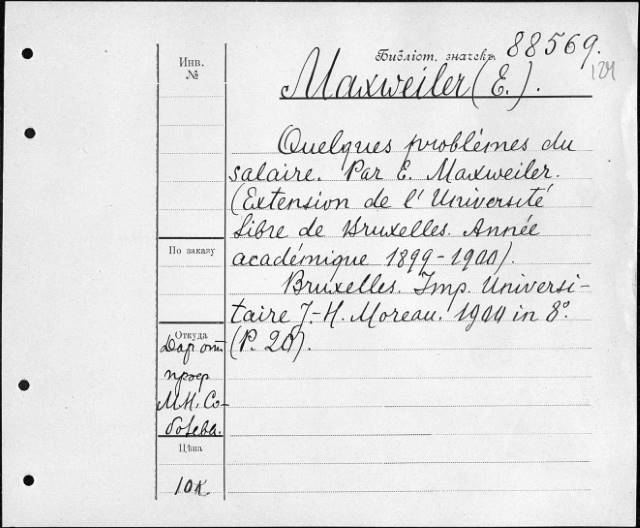 Инв.
№
Библіот. значекъ 88569.
124
Maxweiler (E.).
Quelques problémes du
salaire. Par E. Maxweiler.
(Extension de l'Université
Libre de Bruxelles. Année
académique 1899-1900).
Bruxelles. Imp. Universi-
taire J.-H. Moreau. 1900 in 8°.
(P. 20).
По заказу
Откуда
Дар от
проф
М.Н. Со-
болева.
Цѣна
10к